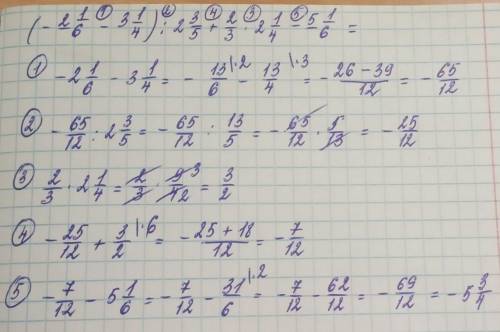 (- 2 1/6 ①- 3 1/4) ②: 2 3/5 ④+ 2/3 ③· 2 1/4 ⑤- 5 1/6 =
① - 2 1/6 - 3 1/4 = - 13/6 |·2 - 13/4 |·3 = - 26 - 39/12 = - 65/12
② - 65/12 : 2 3/5 = - 65/12 : 13/5 = - 65/12 · 5/13 = - 25/12
③ 2/3 · 2 1/4 = 2/3 · 9 3/4 2 = 3/2
④ - 25/12 + 3/2 |·6 = - 25 + 18/12 = - 7/12
⑤ - 7/12 - 5 1/6 = - 7/12 - 31/6 |·2 = - 7/12 - 62/12 = - 69/12 = - 5 3/4